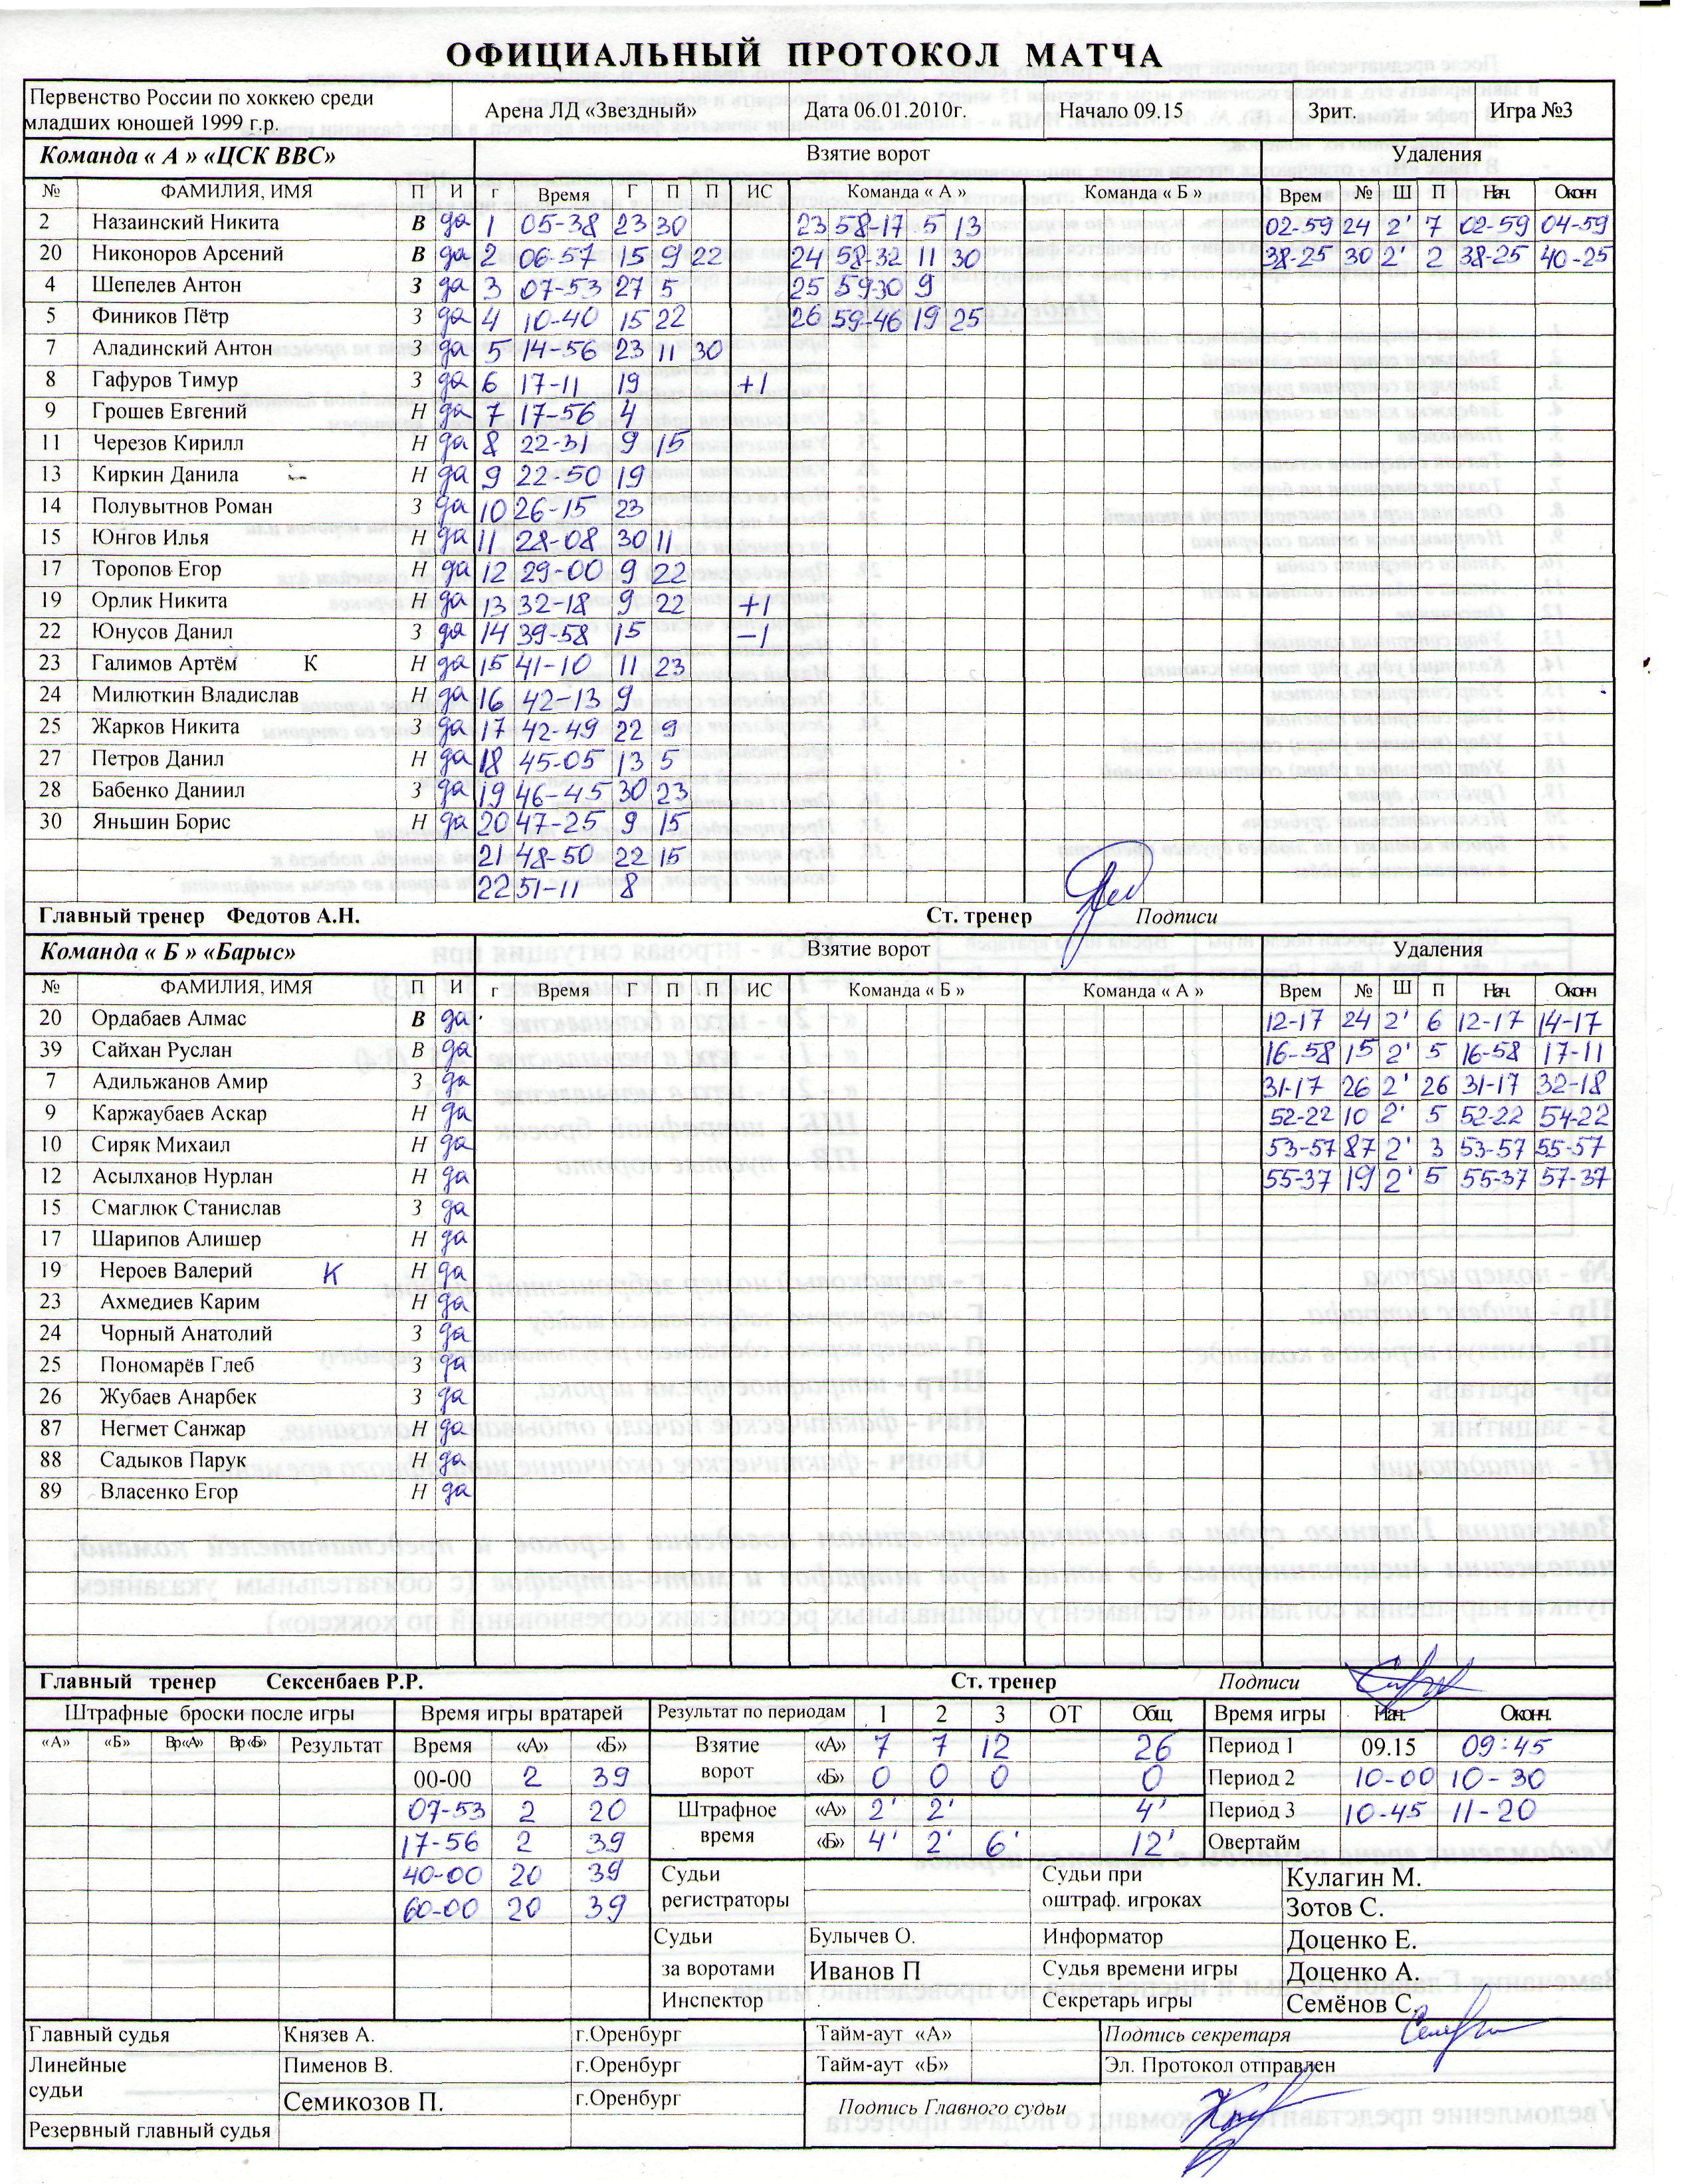 ОФИЦИАЛЬНЫЙ ПРОТОКОЛ МАТЧА
Первенство России по хоккею среди младших юношей 1999 г.р. Арена ЛД «Звездный» Дата 06.01.2010г. Начало 09.15 Зрит. Игра №3
Команда « А » «ЦСК ВВС» Взятие ворот Удаления
№ ФАМИЛИЯ, ИМЯ П И г Время Г П П ИС Команда « А » Команда « Б » Врем № Ш П Нач. Оконч
2 Назаинский Никита В да 1 05-38 23 30 23 58-17 5 13 02-59 24 2' 7 02-59 04-59
20 Никоноров Арсений В да 2 06-57 15 9 22 24 58-32 11 30 38-25 30 2' 2 38-25 40-25
4 Шепелев Антон З да 3 07-53 27 5 25 59-30 9
5 Фиников Пётр З да 4 10-40 15 22 26 59-46 19 25
7 Аладинский Антон З да 5 14-56 23 11 30
8 Гафуров Тимур З да 6 17-11 19 +1
9 Грошев Евгений Н да 7 17-56 4
11 Черезов Кирилл Н да 8 22-31 9 15
13 Киркин Данила Н да 9 22-50 19
14 Полувытнов Роман З да 10 26-15 23
15 Юнгов Илья Н да 11 28-08 30 11
17 Торопов Егор Н да 12 29-00 9 22
19 Орлик Никита Н да 13 32-18 9 22 +1
22 Юнусов Данил З да 14 39-58 15 –1
23 Галимов Артём К Н да 15 41-10 11 23
24 Милюткин Владислав Н да 16 42-13 9
25 Жарков Никита З да 17 42-49 22 9
27 Петров Данил Н да 18 45-05 13 5
28 Бабенко Даниил З да 19 46-45 30 23
30 Яньшин Борис Н да 20 47-25 9 15
21 48-50 22 15
22 51-11 8
Главный тренер Федотов А.Н. Ст. тренер Подписи
Команда « Б » «Барыс» Взятие ворот Удаления
№ ФАМИЛИЯ, ИМЯ П И г Время Г П П ИС Команда « Б » Команда « А » Врем № Ш П Нач. Оконч
20 Ордабаев Алмас В да 12-17 24 2' 6 12-17 14-17
39 Сайхан Руслан В да 16-58 15 2' 5 16-58 17-11
7 Адильжанов Амир З да 31-17 26 2' 26 31-17 32-18
9 Каржаубаев Аскар Н да 52-22 10 2' 5 52-22 54-22
10 Сиряк Михаил Н да 53-57 87 2' 3 53-57 55-57
12 Асылханов Нурлан Н да 55-37 19 2' 5 55-37 57-37
15 Смаглюк Станислав З да
17 Шарипов Алишер Н да
19 Нероев Валерий К Н да
23 Ахмедиев Карим Н да
24 Чорный Анатолий З да
25 Пономарёв Глеб З да
26 Жубаев Анарбек З да
87 Негмет Санжар Н да
88 Садыков Парук Н да
89 Власенко Егор Н да
Главный тренер Сексенбаев Р.Р. Ст. тренер Подписи
Штрафные броски после игры Время игры вратарей Результат по периодам 1 2 3 ОТ Общ. Время игры Нач. Оконч.
«А» «Б» Вр«А» Вр«Б» Результат Время «А» «Б» Взятие ворот «А» 7 7 12 26 Период 1 09.15 09:45
00-00 2 39 «Б» 0 0 0 0 Период 2 10-00 10-30
07-53 2 20 Штрафное время «А» 2' 2' 4' Период 3 10-45 11-20
17-56 2 39 «Б» 4' 2' 6' 12' Овертайм
40-00 20 39 Судьи регистраторы Судьи при оштраф. игроках Кулагин М.
60-00 20 39 Зотов С.
Судьи за воротами Булычев О. Информатор Доценко Е.
Иванов П Судья времени игры Доценко А.
Инспектор Секретарь игры Семёнов С.
Главный судья Князев А. г.Оренбург Тайм-аут «А» Подпись секретаря
Линейные судьи Пименов В. г.Оренбург Тайм-аут «Б» Эл. Протокол отправлен
Семикозов П. г.Оренбург Подпись Главного судьи
Резервный главный судья